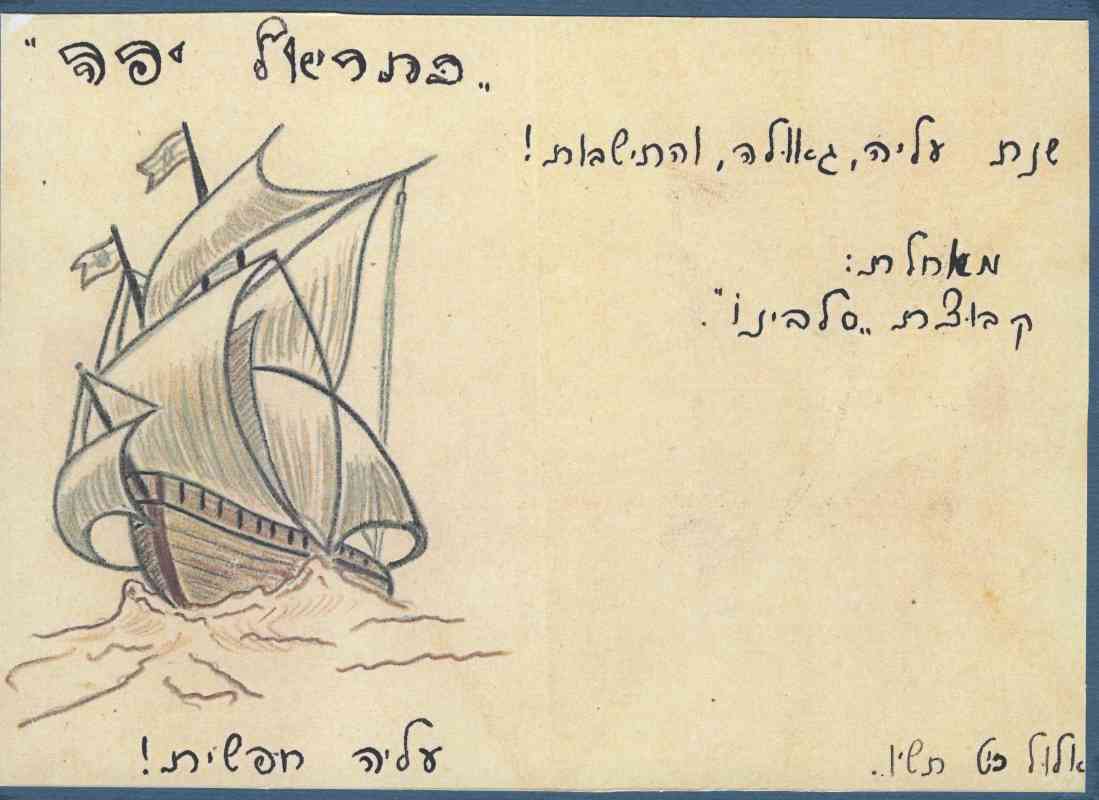 יפה"
שנת עליה, גאולה, והתישבות!
מאחלת:
קבוצת „סלבינו".
עליה חפשית!
אלול כ"ט תש"ו.